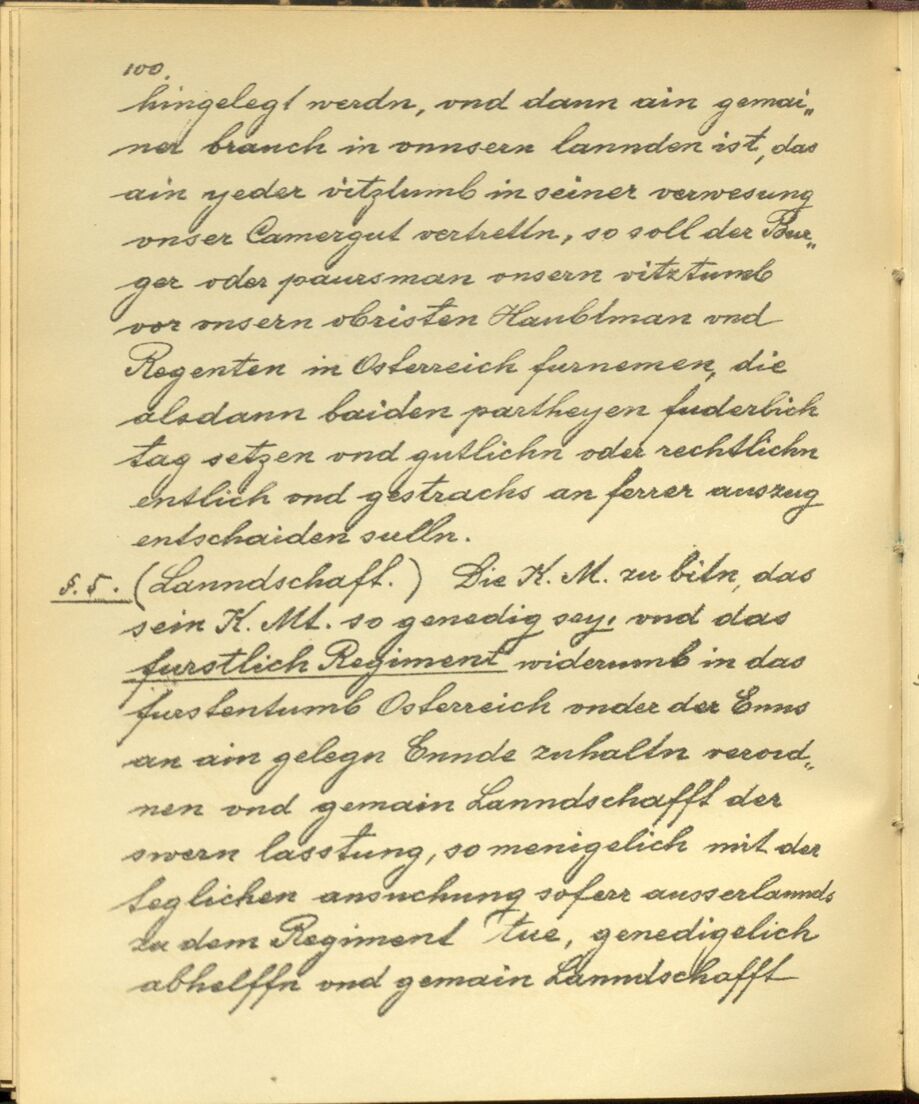 100.
hingelegt werdn, vnd dann ain gemai„
ner brauch in vnnsern lannden ist, das
ain yeder vitztumb in seiner verwesung
vnser Camergut vertrettn, so soll der Bur„
ger oder paursman vnsern vitztumb
vor vnsern obristen Haubtman vnd
Regenten in Osterreich furnemen, die
alsdann baiden partheyen fuderlich
tag setzen vnd gutlichn oder rechtlichn
entlich vnd gestrachs an ferrer auszug
entschaiden sulln.
§. 5. (Lanndschaft.) Die K. M. zu bitn, das
sein K. Mt. so genedig sey, vnd das
furstlich Regiment widerumb in das
furstentumb Osterreich vnder der Enns
an ain gelegn Ennde zuhaltn verord„
nen vnd gemain Lanndschafft der
swern lasstung, so menigelich mit der
teglichen ansuchung soferr ausserlannds
zu dem Regiment tue, genedigelich
abhelffn vnd gemain Lanndschafft